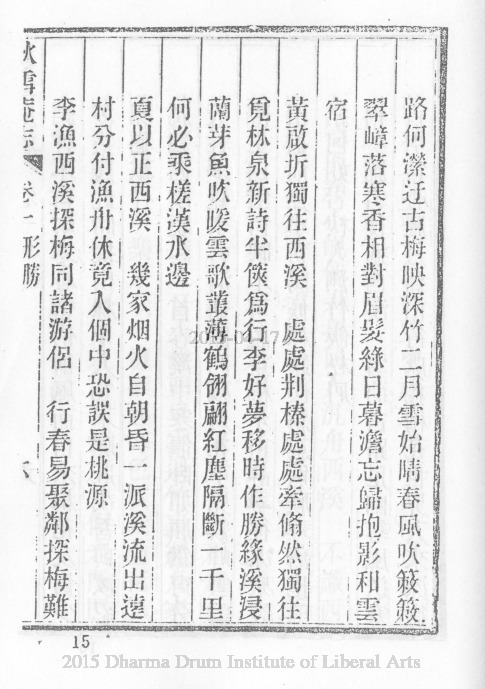 路何瀠迂古梅映深竹二月雪始晴春風吹簌簌
翠嶂落寒香相對眉髮綠日暮澹忘歸抱影和雲
宿
黃啟圻獨往西溪　處處荆榛處處牽翛然獨往
覓林泉新詩半篋爲行李好夢移時作勝緣溪浸
蘭芽魚吹暖雲歌叢薄鶴翎翩紅塵隔斷一千里
何必乘槎漢水邊
夏以正西溪　幾家烟火自朝昏一派溪流出遠
村分付漁舟休竟入個中恐誤是桃源
李漁西溪探梅同諸游侶　行春易聚鄰探梅難
秋雪菴志　卷一　形勝
15
2015 Dharma Drum Institute of Liberal Arts